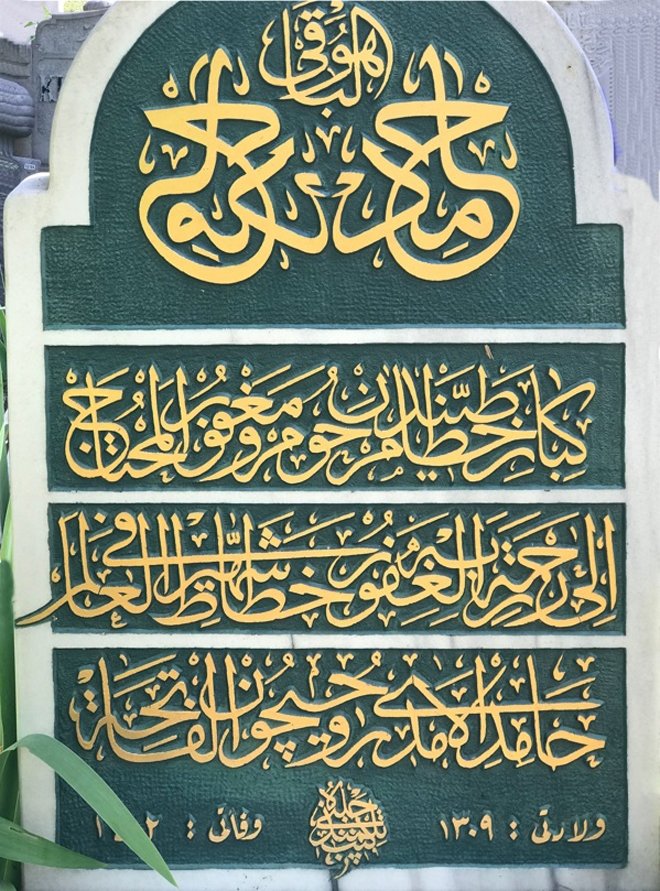 هو الباقي
حامد
كبار خطاطيندن مرحوم ومغفور المحتاج
الى رحمة ربه الغفور خطاط شهير في العالم
حامد الآمدي روحيچون الفاتحة
ولادتى : ١٣٠٩ وفاتى :